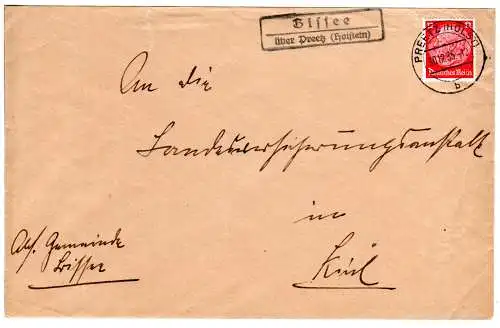 Bissee
über Preetz (Holstein)
PREETZ (HOLST)
Deutsches Reich
b
An die
Landesversicherungsanstalt
in
Kiel
Abs. Gemeinde
Bissee